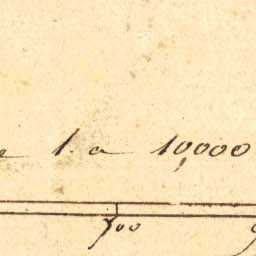 e 1. a 10,000
700